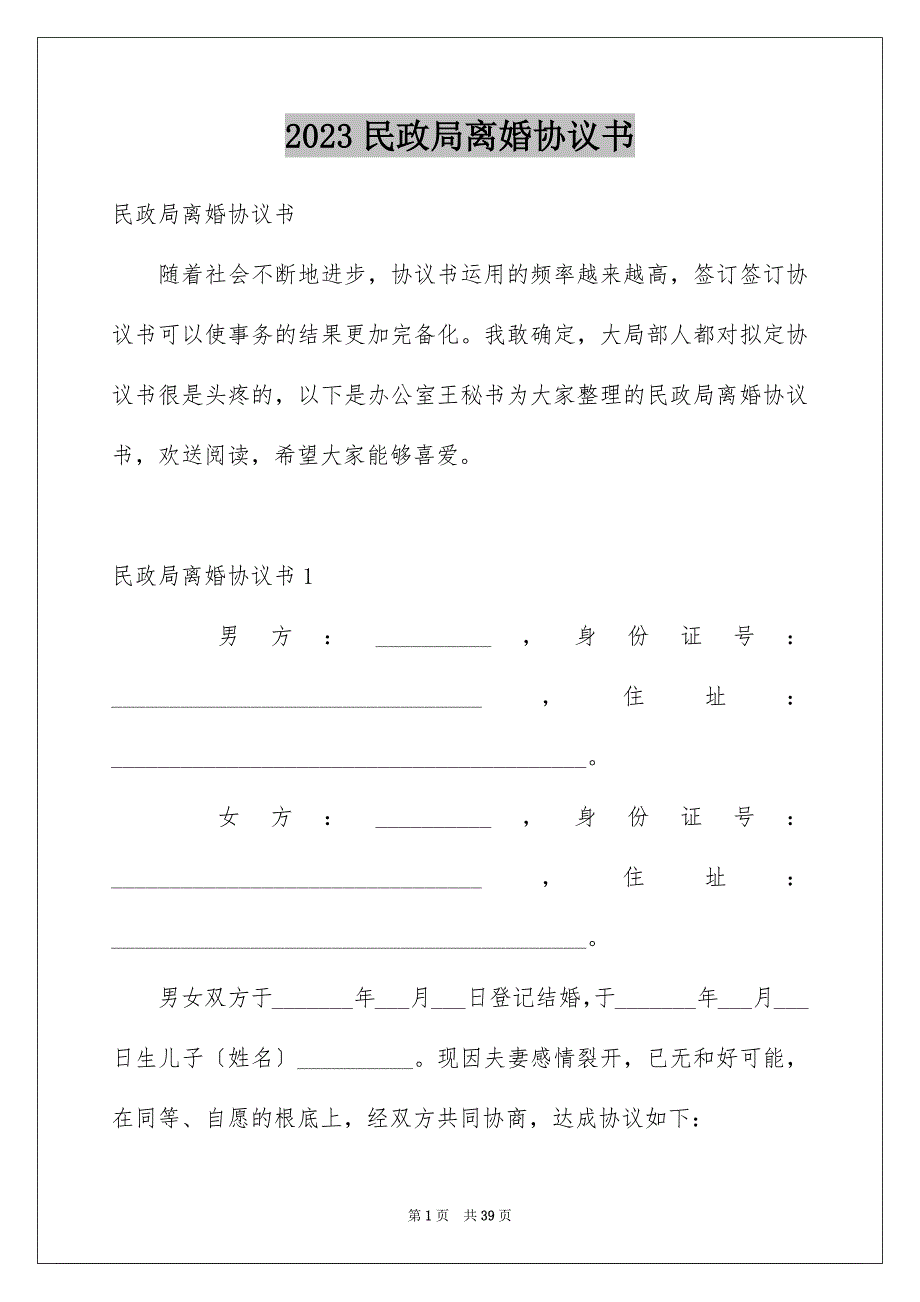 2023民政局离婚协议书
民政局离婚协议书
随着社会不断地进步，协议书运用的频率越来越高，签订签订协
议书可以使事务的结果更加完备化。我敢确定，大局部人都对拟定协
议书很是头疼的，以下是办公室王秘书为大家整理的民政局离婚协议
书，欢送阅读，希望大家能够喜爱。
民政局离婚协议书1
男方：__________，身份证号：
________________________________，住址：
_________________________________________。
女方：__________，身份证号：
________________________________，住址：
_________________________________________。
男女双方于_______年___月___日登记结婚,于_______年___月___
日生儿子〔姓名〕__________。现因夫妻感情裂开，已无和好可能，
在同等、自愿的根底上，经双方共同协商，达成协议如下：
第1页 共39页